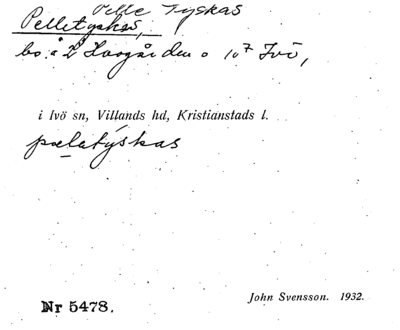 Pelle Tyskas
Pelletyskas,
bo. å 2 Hovgården o 10⁷ Ivö,
i Ivö sn, Villands hd, Kristianstads l.
pælatýskas
Nr 5478.
John Svensson. 1932.